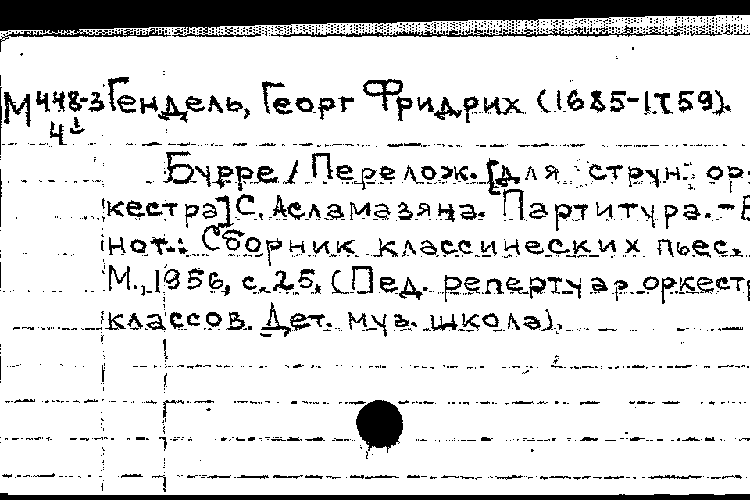 М 448-3 Гендель, Георг Фридрих (1685-1759).
4¹
Бурре / Перелож. [для струн. ор-
кестра] С. Асламазяна. Партитура. - В
нот.: Сборник классических пьес.
М., 1956, с. 25. (Пед. репертуар оркестр
классов. Дет. муз. школа).